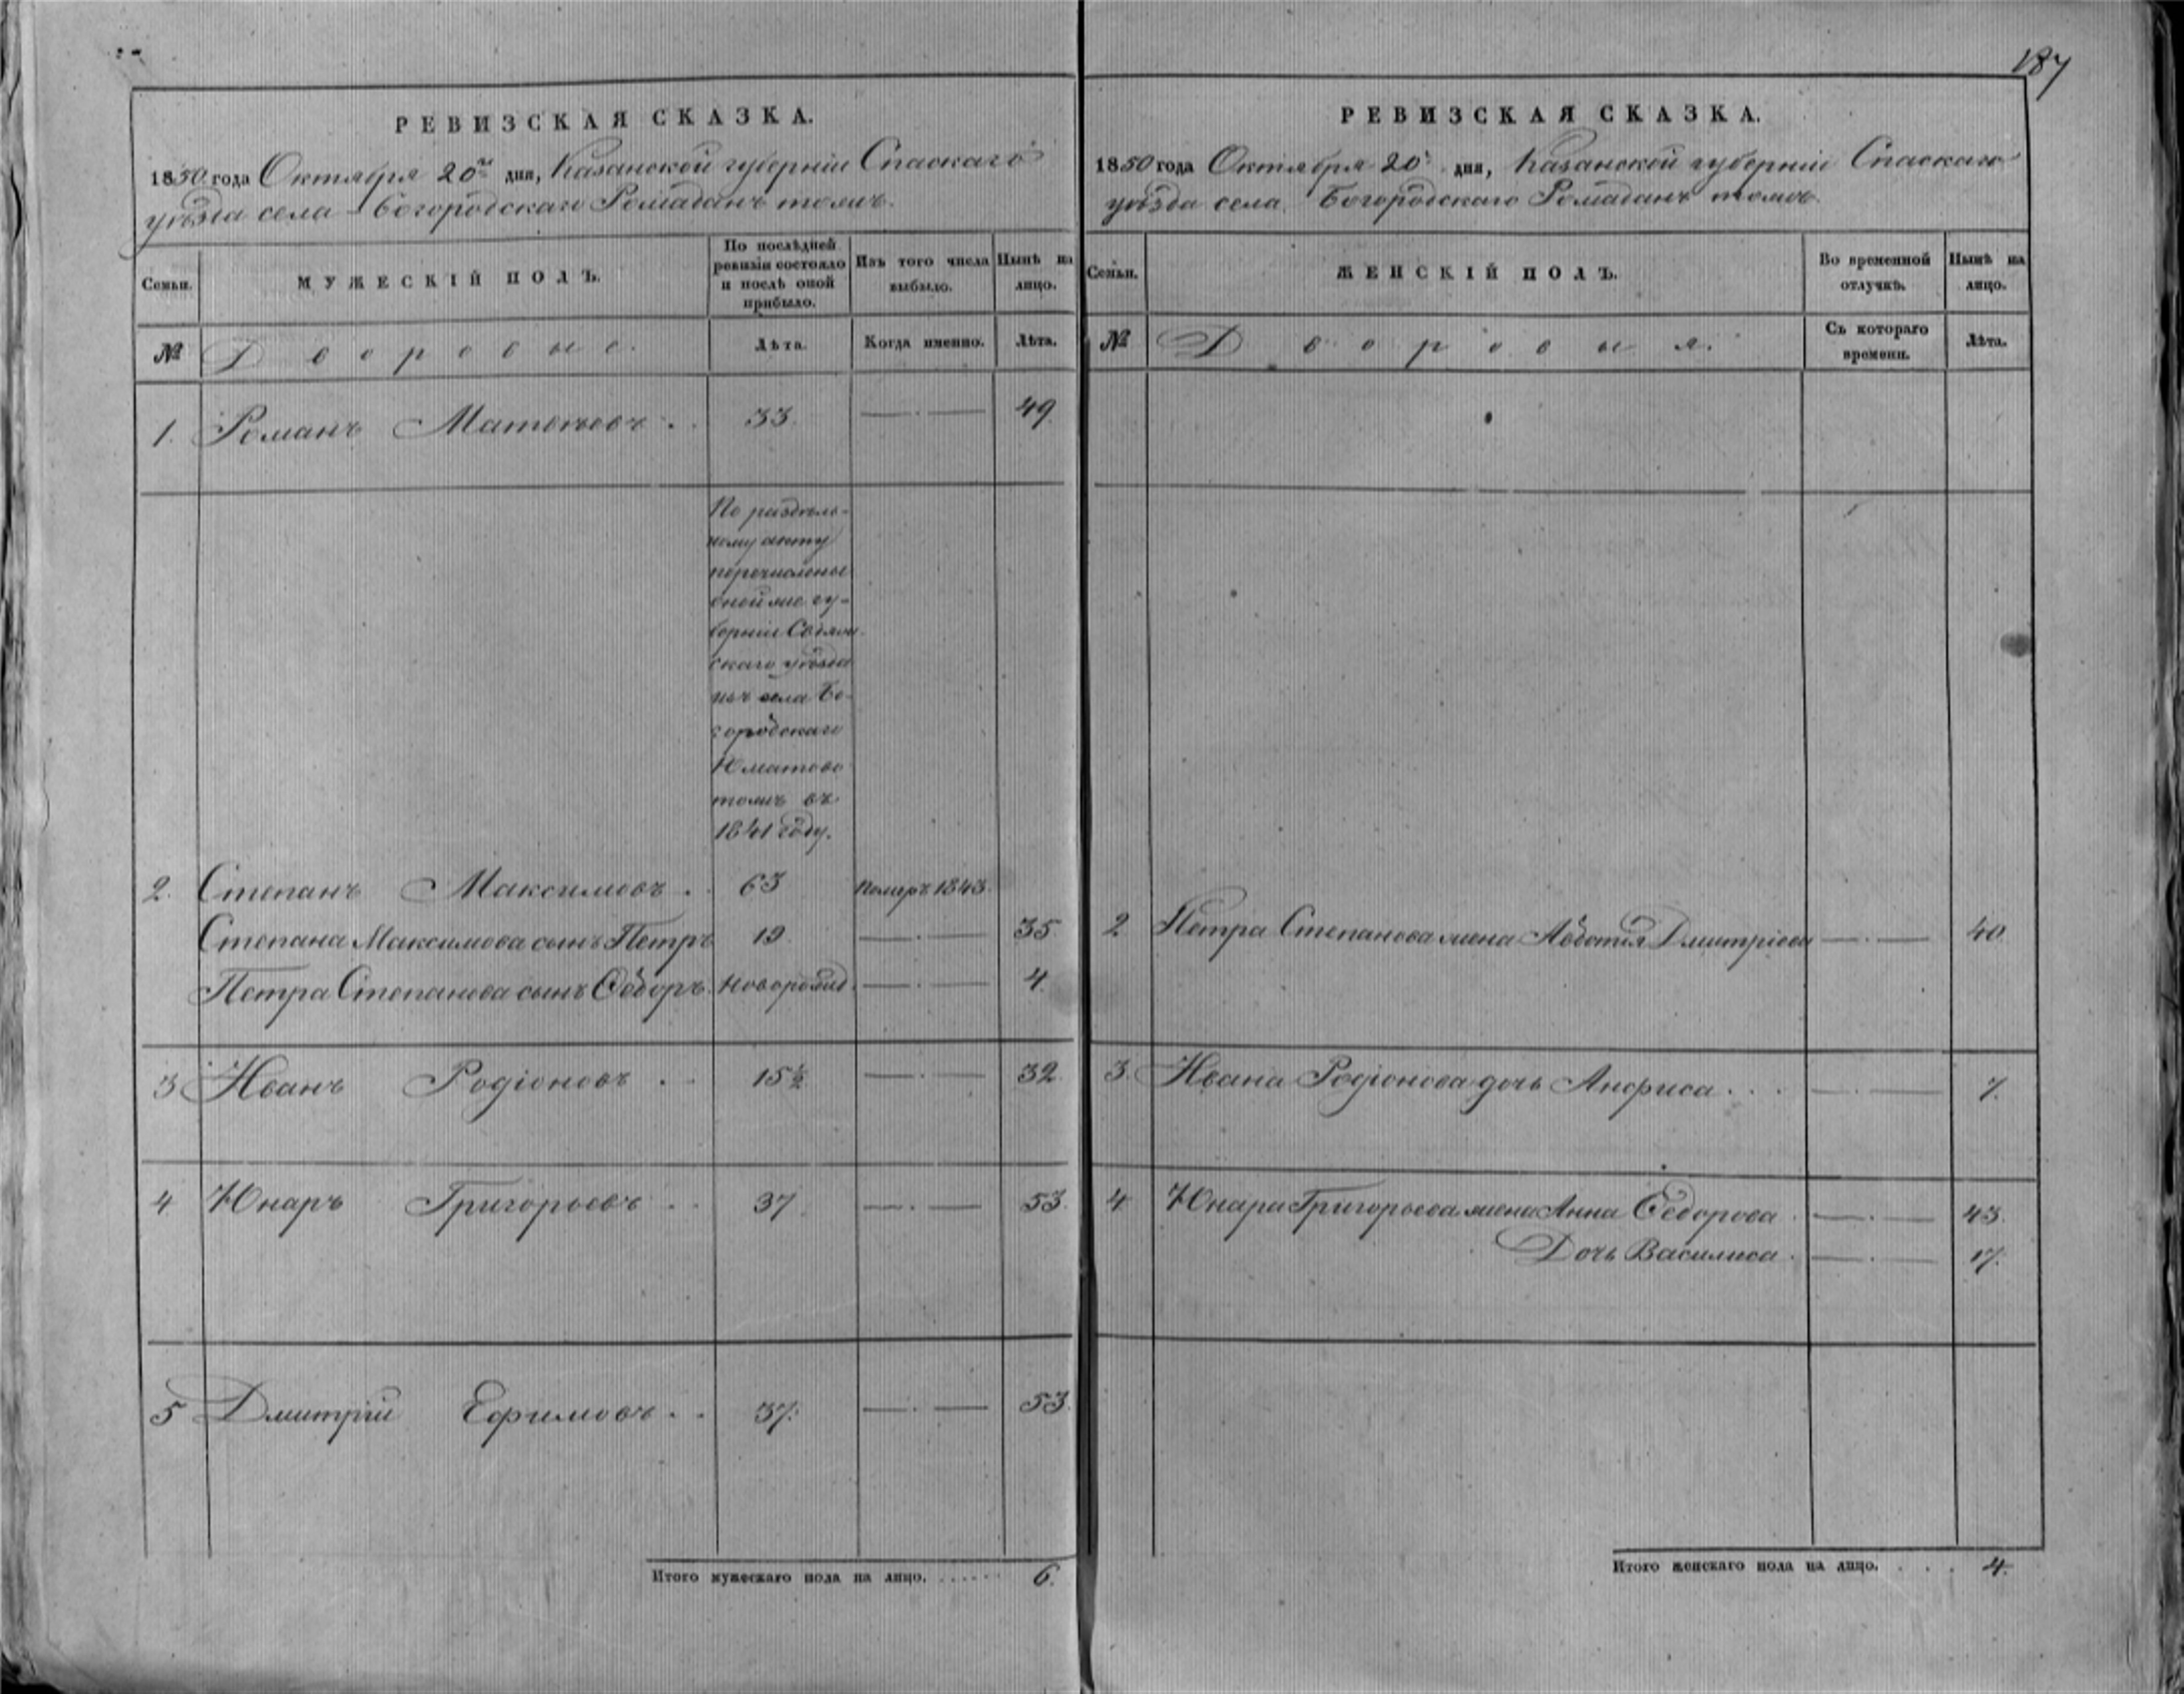 187
РЕВИЗСКАЯ СКАЗКА.
1850 года Октября 20го дня, Казанской губерніи Спаскаго
уѣзда села Богородскаго Ромаданъ тожъ.
Семьи.
МУЖЕСКІЙ ПОЛЪ.
По послѣдней ревизіи состояло и послѣ оной прибыло.
Изъ того числа выбыло.
Нынѣ на лицо.
№
Дворовые.
Лѣта.
Когда именно.
Лѣта.
1. Романъ Матвѣевъ . . 33. —.— 49.
По раздѣль-
ному акту
перечислены
оной же гу-
берніи Свіяж-
скаго уѣзда
изъ села Бо-
городскаго
Юматово
тожъ въ
1841 году.
2. Степанъ Максимовъ . . 63 Померъ 1843.
Степана Максимова сынъ Петръ 19. —.— 35
Петра Степанова сынъ Ѳедоръ. Новорожд. —.— 4.
3 Иванъ Родіоновъ . . 15½ —.— 32.
4 Юнаръ Григорьевъ . . 37. —.— 53.
5 Дмитрій Ефимовъ . . 37. —.— 53.
Итого мужескаго пола на лицо. . . . . . 6.
РЕВИЗСКАЯ СКАЗКА.
1850 года Октября 20го дня, Казанской губерніи Спаскаго
уѣзда села Богородскаго Ромаданъ тожъ.
Семьи.
ЖЕНСКІЙ ПОЛЪ.
Во временной отлучкѣ.
Нынѣ на лицо.
№
Дворовыя.
Съ котораго времени.
Лѣта.
2 Петра Степанова жена Авдотья Дмитріева —.— 40.
3. Ивана Родіонова дочь Анфиса . . . —.— 7.
4 Юнара Григорьева жена Анна Ѳедорова . —.— 43.
Дочь Василиса . —.— 17.
Итого женскаго пола на лицо. . . . 4.